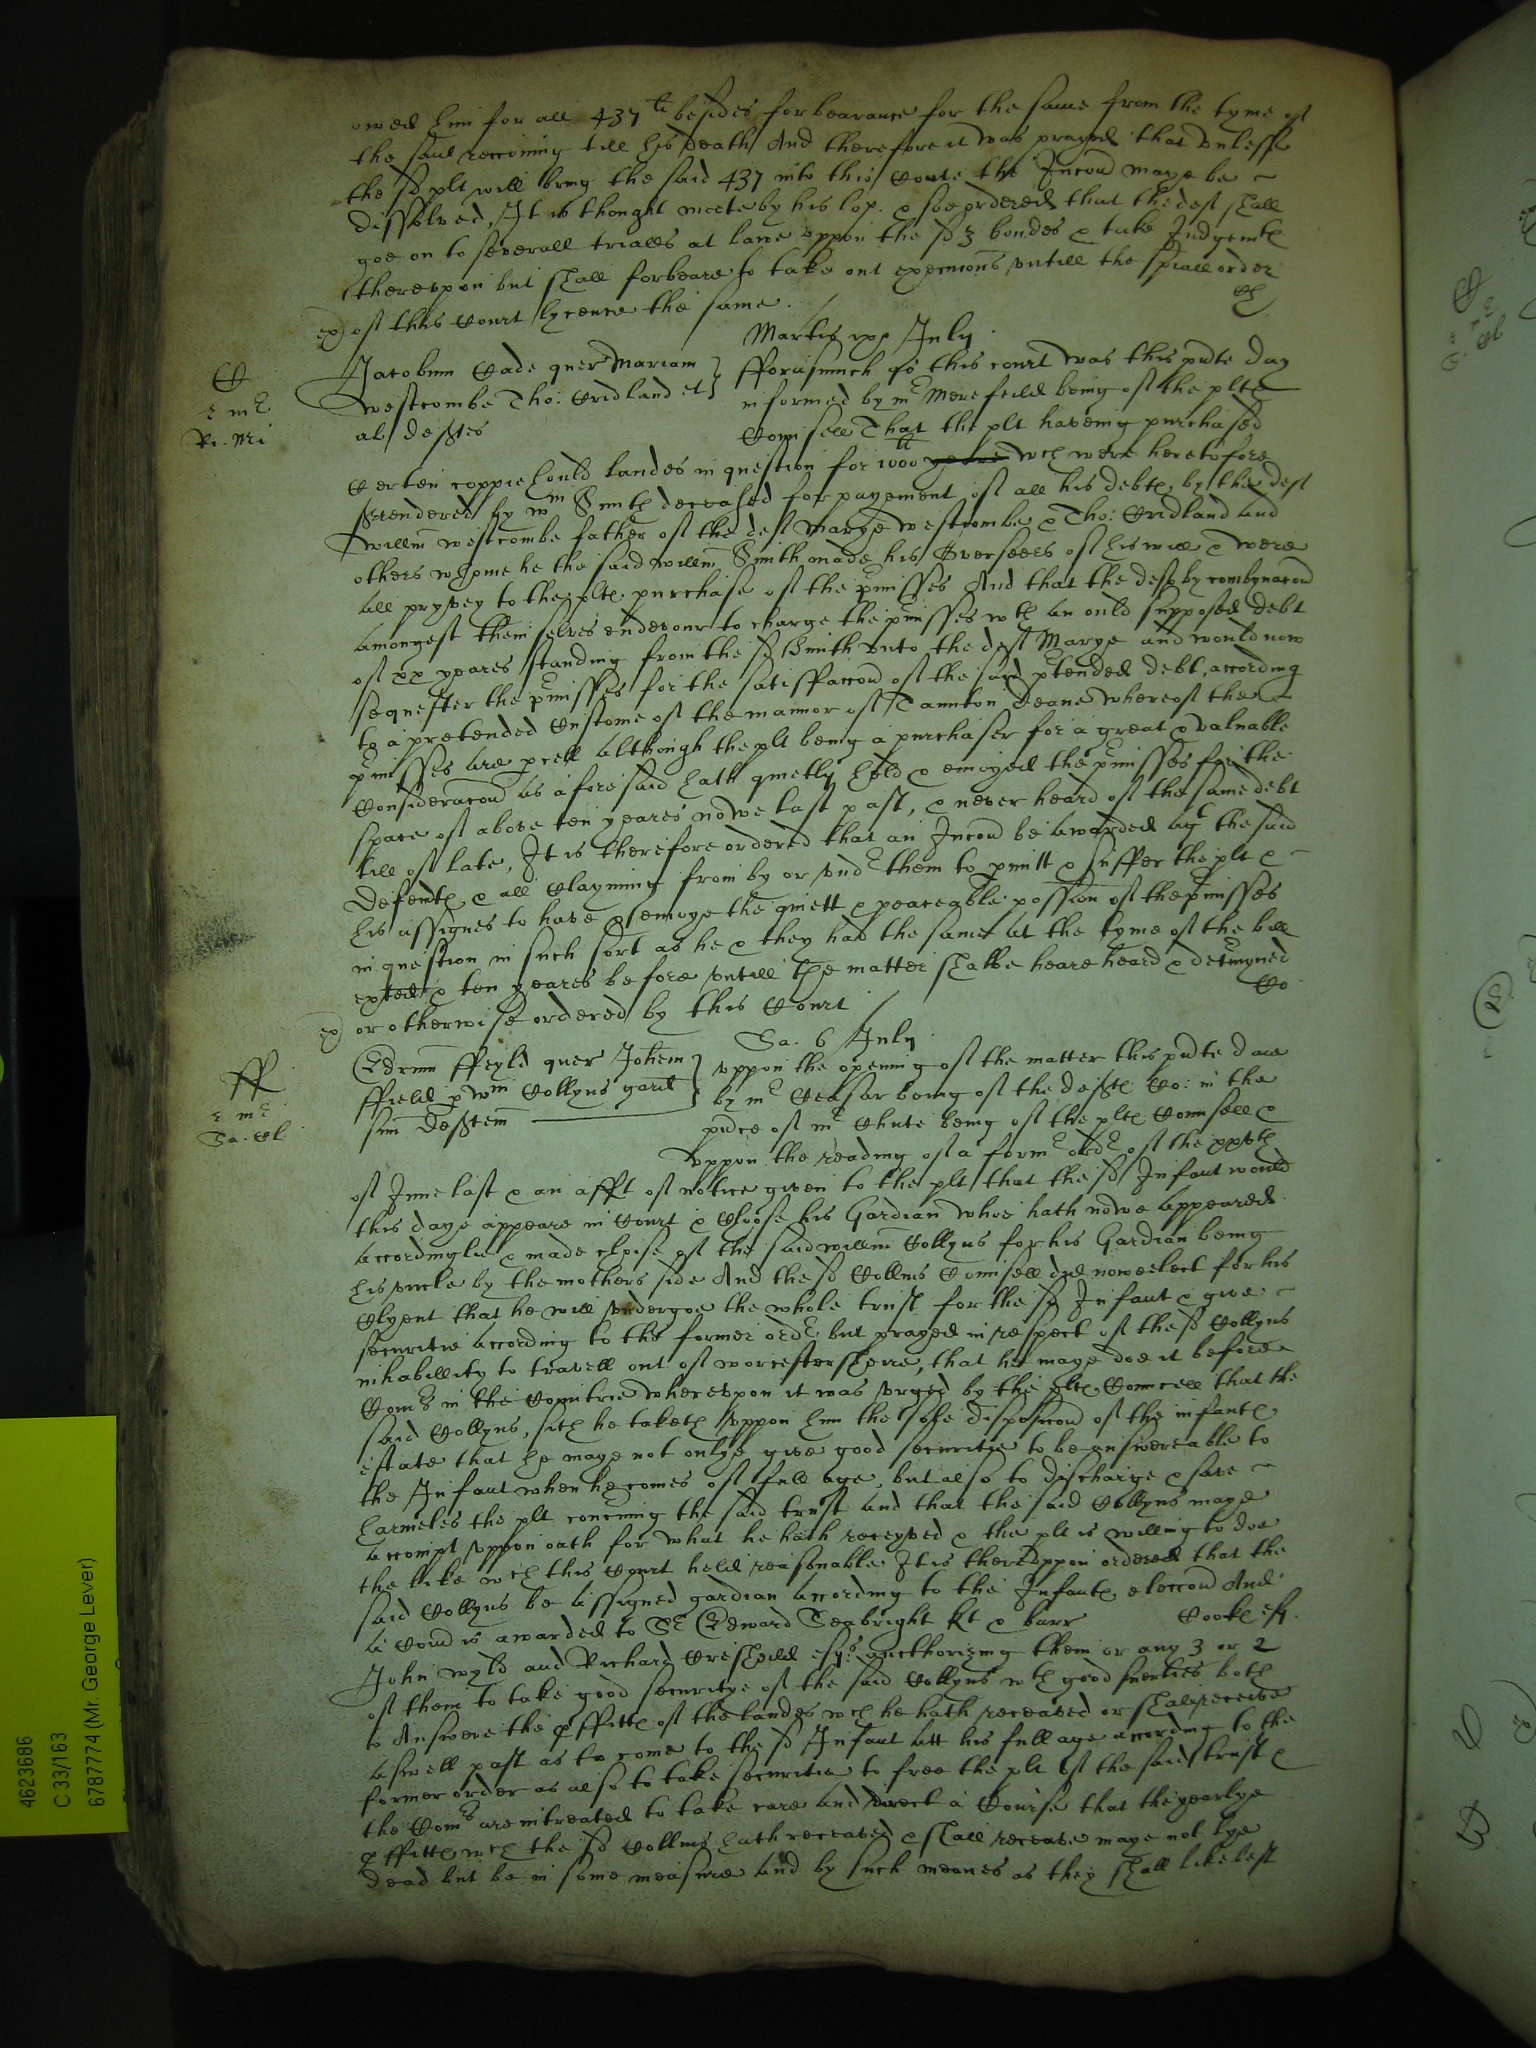 owed him for all 437li besides forbearance for the same from the tyme of
the said reconing till his death And therefore it was prayed that vnlesse
the sd plt will bring the said 437 into this Courte the Iniuncon maye be
dissolved, It is thought meete by his lop. & soe ordered that the deft shall
goe on to severall trialls at lawe vppon the sd 3 bondes & take Iudgemte
therevpon but shall forbeare to take out execucions vntill the speciall order
ex) of this Court lycence the same.
Martis xxx July
C
Jacobum Cade quer Mariam
Westcombe Tho: Cridland et
al deftes
fforasmuch as this court was this pnte day
informed by mr Merefeild being of the pltes
Counsell That the plt haveing purchased
Certein coppiehould landes in question for 1000li yeares wch were heretofore
srendered by Wm Smith deceased for payement of all his debtes by the deft
Willm Westcombe father of the deft Marye Westcombe & Tho: Cridland and
others whome he the said Willm Smith made his Overseers of his will & were
all pryvey to the pltes purchase of the pmisses And that the defts by combynacon
amongest themselves endevour to charge the pmisses wth an ould supposed debt
of xx yeares standing from the sd Smith vnto the deft Marye and would now
sequester the pmisses for the satisfaccon of the said ptended debt, according
to a pretended Custome of the mannor of Taunton Deane whereof the
pmisses are pcell although the plt being a purchaser for a great & valuable
Consideracon as aforesaid hath quietly held & enioyed the pmisses for the
space of above ten yeares nowe last past, & never heard of the same debt
till of late, It is therefore ordered that an Iniuncon be awarded agt the said
Defendtes & all Clayming from by or vnder them to pmitt & suffer the plt &
his assignes to have & enioye the quiett & peaceable possion of the pmisses
in question in such sort as he & they had the same at the tyme of the bill
exhted & ten yeares before vntill the matter shalbe heare heard & determyned
ex) or otherwise ordered by this Court
Co
Sa. 6 July
ff
Edrum ffeyld quer Johem
ffield p Wm Collyns gard
suu deftem
vppon the opening of the matter this pnte daie
by mr Ceasar being of the deftes Co: in the
pnce of mr Chute being of the pltes Counsell &
vppon the reading of a former order of the xxvth
of June last & an afft of notice given to the plt that the sd Infant would
this daye appeare in Court & Choose his Gardian whoe hath nowe appeared
accordinglie & made choise of the said Willm Collyns for his Gardian being
his vncle by the mothers side And the sd Collins Counsell did now elect for his
Clyent that he will vndergoe the whole trust for the sd Infant & give
securitie according to the former order but prayed in respect of the sd Collyns
inhabillity to travell out of worcestershere, that he maye doe it before
Comrs in the Countrie wherevpon it was vrged by the pltes Councell that the
said Collyns, sith he taketh vppon him the sole disposicon of the infantes
estate that he maye not onlye give good securitie to be answereable to
the Infant when he comes of full age, but also to discharge & save
harmeles the plt concerning the said trust and that the said Collyns maye
accompt vppon oath for what he hath receyved & the plt is willing to doe
the like wch this Court held reasonable It is therevppon ordered that the
said Collyns be assigned gardian according to the Infantes eleccon And
a Comn is awarded to Sr Edward Seabright kt & barr Cookes esq.
John Wyld and Richard Cresheld esqrs aucthorizing them or any 3 or 2
of them to take good securitye of the said Collyns wth good suerties both
to Answere the pffittes of the landes wch he hath receaved or shall receive
aswell past as to come to the sd Infant att his full age according to the
former order as also to take securitie to free the plt of the said trust &
the Comrs are intreated to take care and direct a Course that the yearlye
pffittes wch the sd Collins hath receaved & shall receave maye not lye
dead but be in some measure and by such meanes as they shall like best
4623686
C 33/163
6787774 (Mr. George Lever)